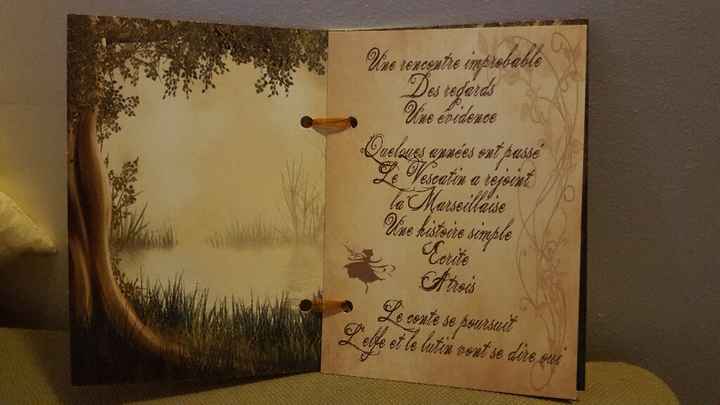 Une rencontre improbable
Des regards
Une évidence
Quelques années ont passé
Le Vescatin a rejoint
la Marseillaise
Une histoire simple
Ecrite
A trois
Le conte se poursuit
L'elfe et le lutin vont se dire oui